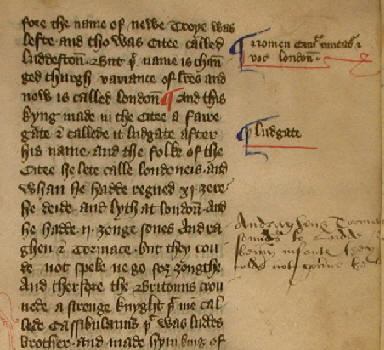 fore the name of newe Troye was
lefte and tho was Citee called
Luddeston. But þe name is chan
ged thurgh variance of lettres and
now is called london ¶ And this
kyng made in the Citee a faire
gate & callede it Ludgate after
his name and the folke of the
Citee he lete calle londoneis and
whan he hadde regned xi yere
he deide and lyth at london And
he hadde ij yonge sones Andra
ghen & Tormace but they cou
de not speke ne go for yongthe
And therfore the Britouns crou
nede a stronge knyght þat me cal
lede Cassibulanus þat was Ludes
brother and made hym kyng of
¶ nomen
voc london
¶ ludgate